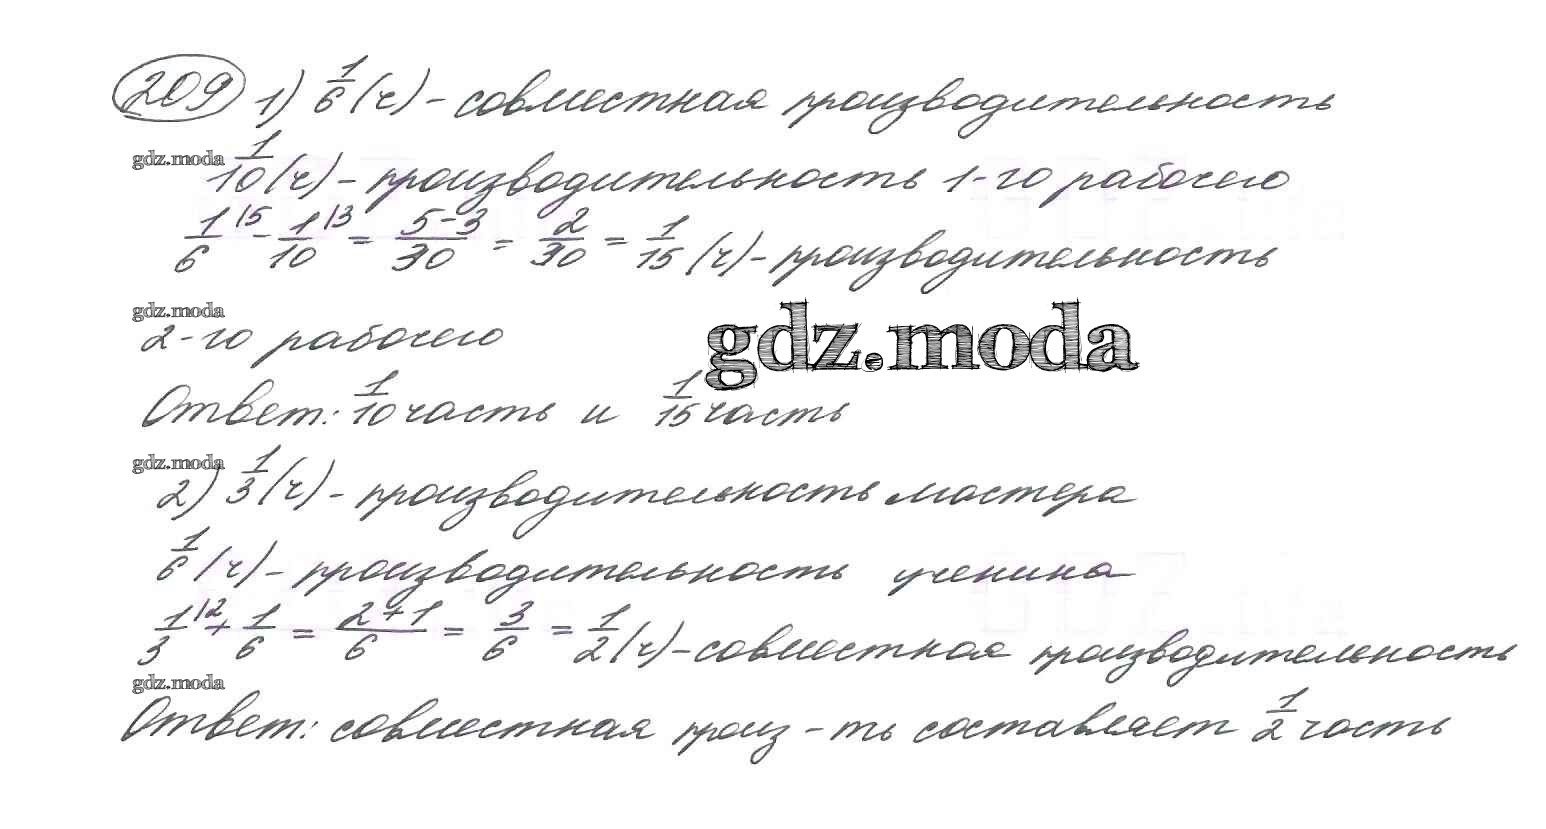 209 1) 1/6 (ч) - совместная производительность
gdz.moda
1/10 (ч) - производительность 1-го рабочего
1/6 |5 - 1/10 |3 = 5-3/30 = 2/30 = 1/15 (ч) - производительность
gdz.moda
2-го рабочего
gdz.moda
Ответ: 1/10 часть и 1/15 часть
gdz.moda
2) 1/3 (ч) - производительность мастера
1/6 (ч) - производительность ученика
1/3 |2 + 1/6 = 2+1/6 = 3/6 = 1/2 (ч) - совместная производительность
gdz.moda
Ответ: совместная произ-ть составляет 1/2 часть